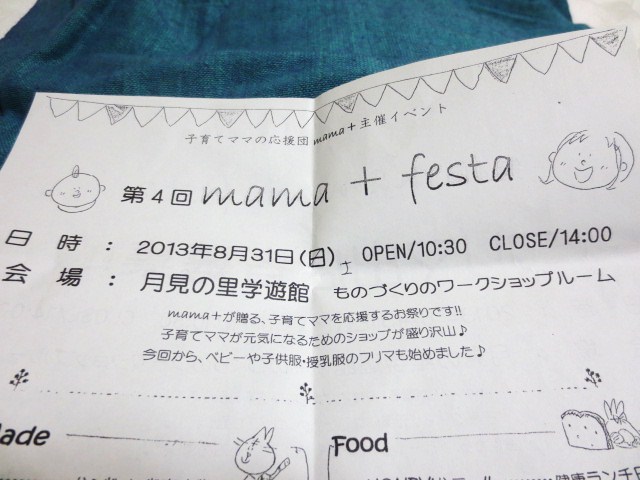 子育てママの応援団mama+主催イベント
第4回 mama + festa
日 時 : 2013年8月31日(日) 土 OPEN/10:30 CLOSE/14:00
会 場 : 月見の里学遊館 ものづくりのワークショップルーム
mama+が贈る、子育てママを応援するお祭りです!!
子育てママが元気になるためのショップが盛り沢山♪
今回から、ベビーや子供服・授乳服のフリマも始めました♪
ade
Food